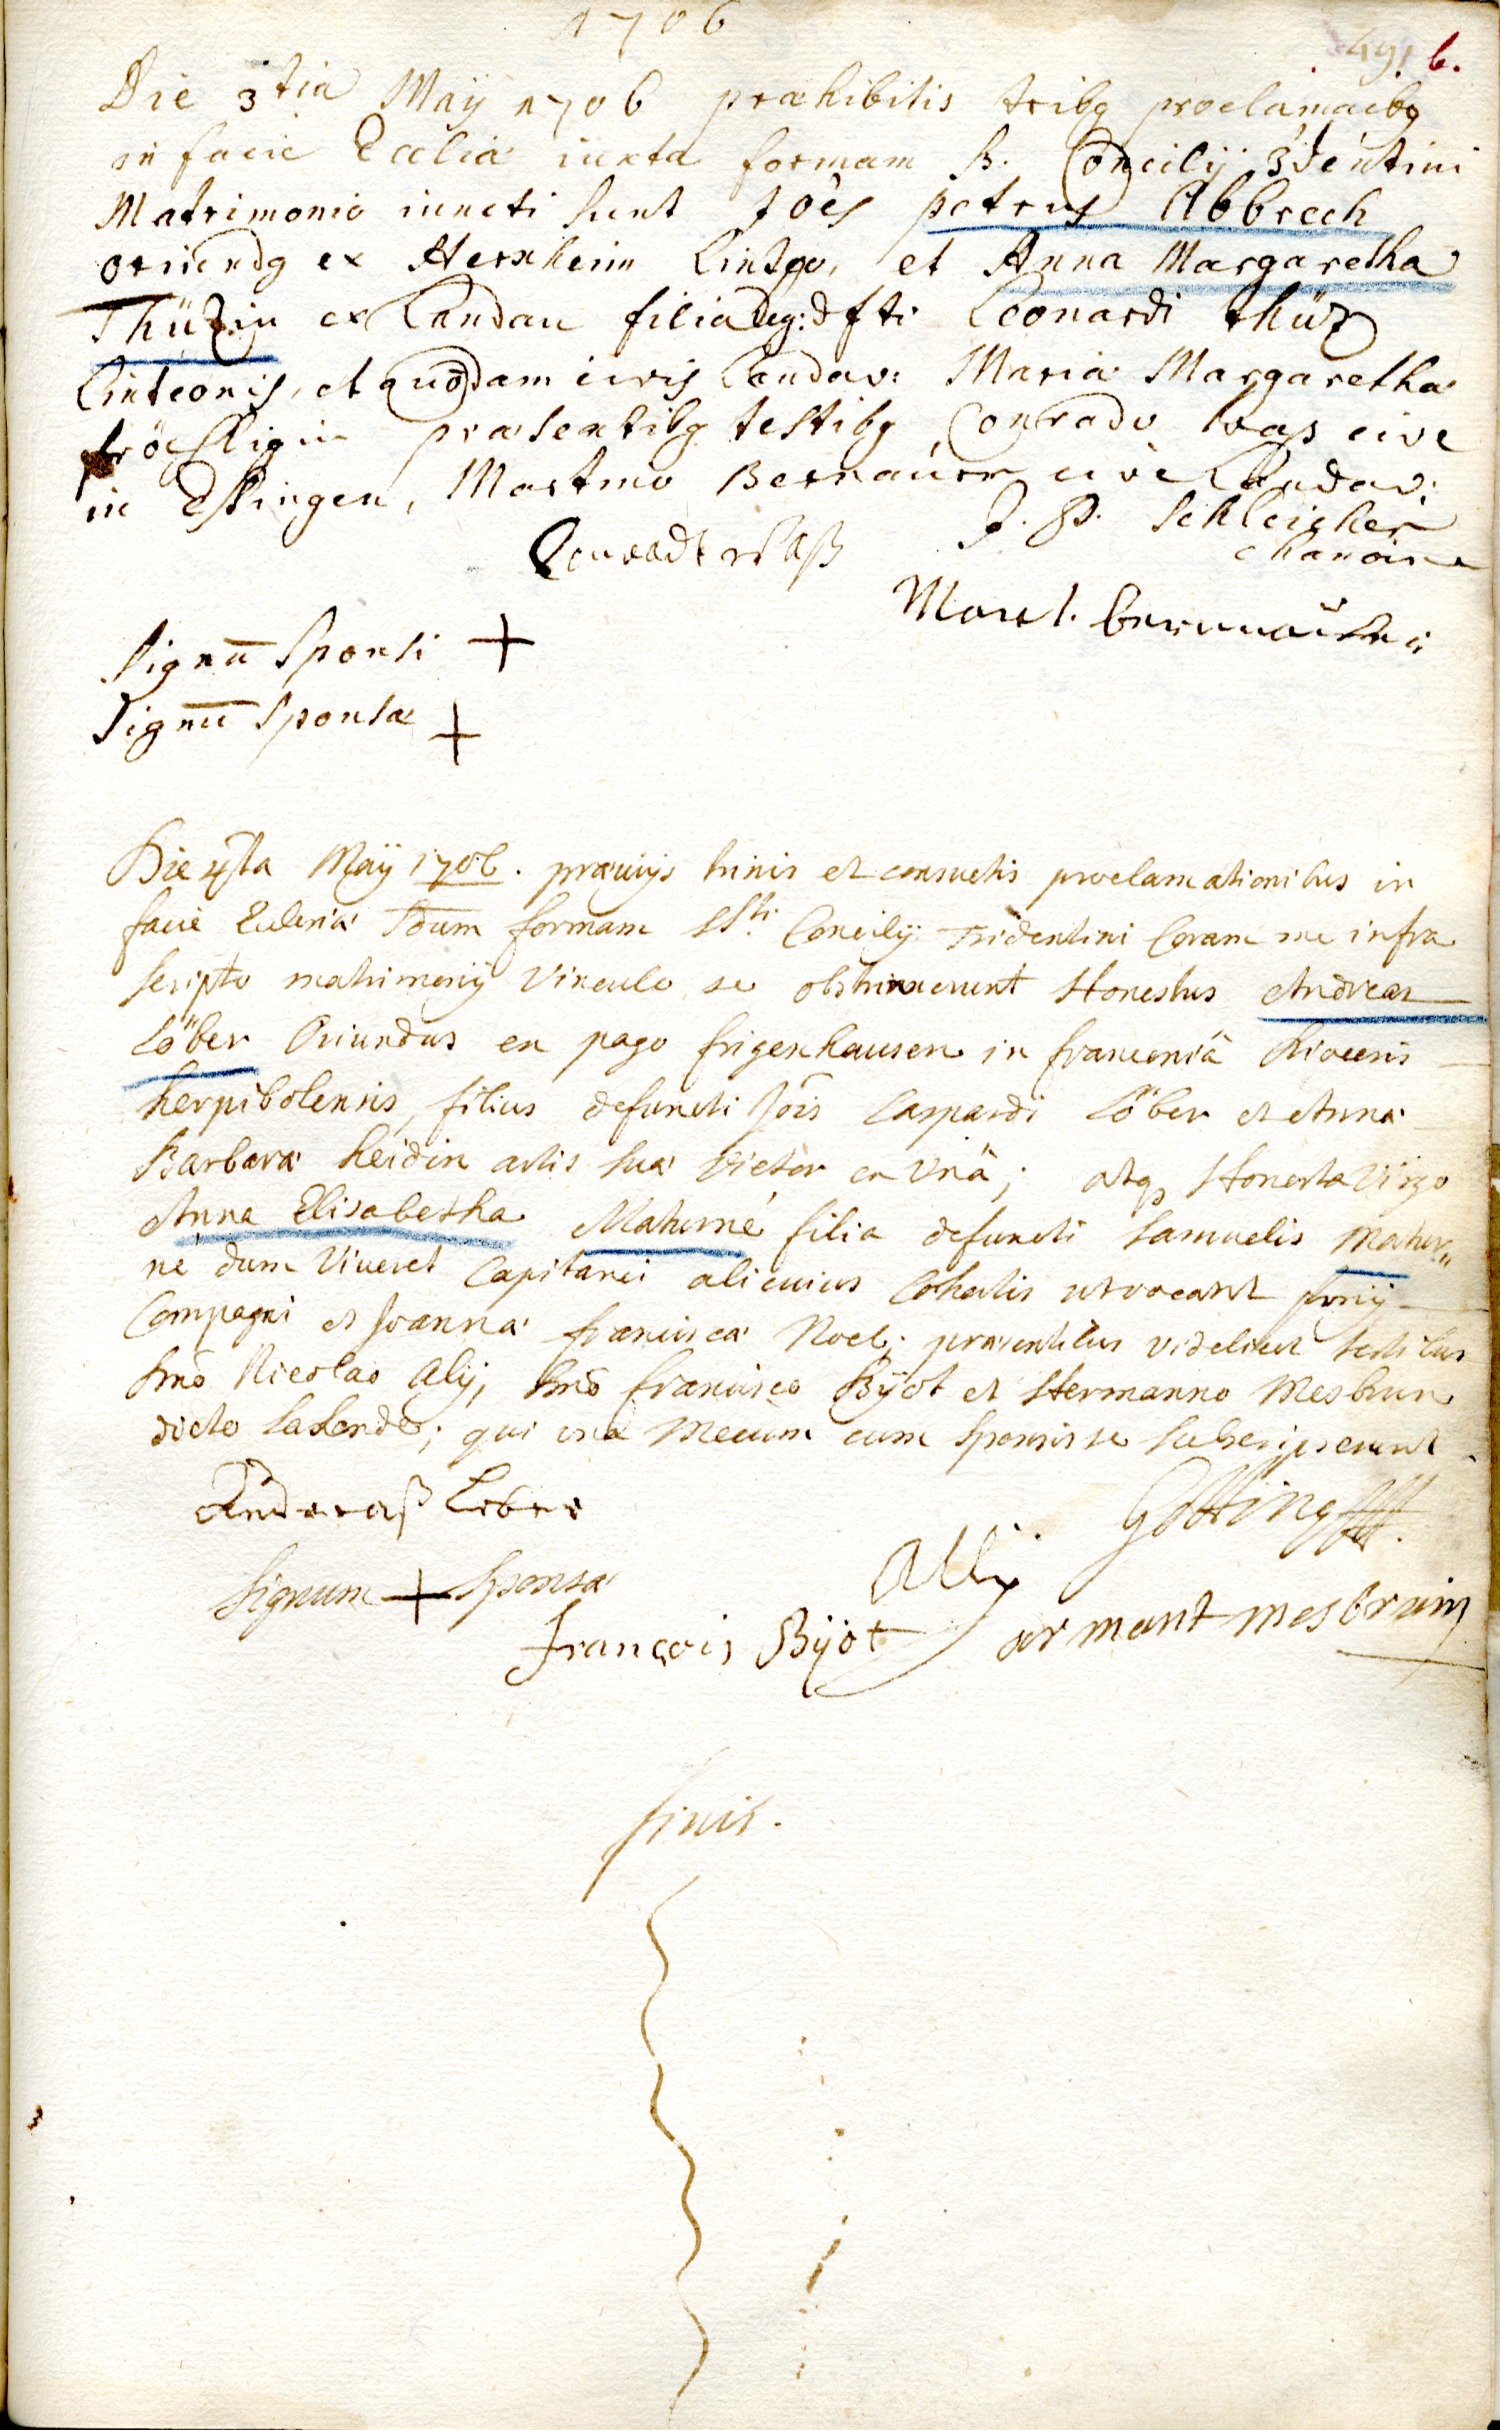 1706
491 b.
Die 3tia Maÿ 1706 præhibitis tribq proclamaōbq
in facie Ecclia iuxta formam S. Concilij 3dentini
Matrimonio iuncti sunt Joēs petrus Abbrech
oriundq ex Herxheim et Anna Margaretha
Thüzin ex Landau filia leg: dfti Leonardi thüz
Linteonis, et quōdam civis Landav: Maria Margaretha
præsentibq testibq Conrado was cive
in Essingen, Martino Bernauer cive Landav:
J. P. Schleicher
chanoine
Conradt waß
Mart. bernnauer
Signū Sponsi +
Signū Sponsæ +
Die 4ta Maÿ 1706. præviÿs trinis et consuetis proclamationibus in
facie Ecclesiæ Sdum formam SSti Concilÿ Tridentini Coram me infra
scripto matrimonÿ Vinculo se obstrinxerunt Honestus Andreas
Löber Oriundus ex pago frigenhausen in franconiâ Diocesis
herpibolensis, filius defuncti Jois Caspardi Löber et Anna
Barbara heidin artis sua Vietor ex Vnâ; atq Honesta Virgo
Anna Elisabetha Maturné filia defuncti Samuelis Matur„
né dum Viveret Capitanei alicuius Cohortis ut vocant
Compagni et Joanna francisca Noel; præsentibus videlicet testibus
Dno Nicolao Alÿ, Dno francisco Bÿot et Hermanno Mesbrun
dicto ; qui una Mecum cum Sponsis se Subscripserunt
Andereaß Leber
Götting
Allÿ
Signum + Sponsæ
François Bÿot
armant mesbruin
finis.